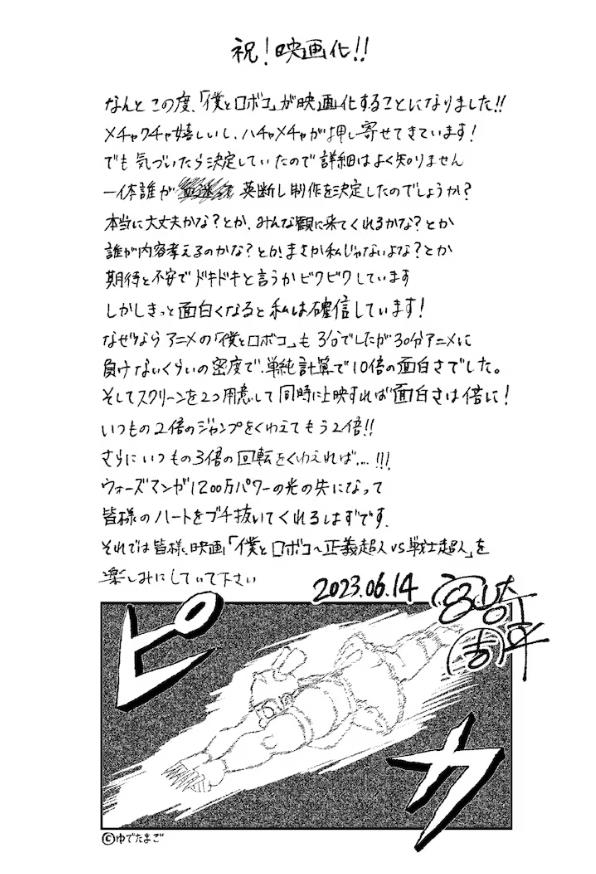 祝！映画化!!
なんとこの度、「僕とロボコ」が映画化することになりました!!
メチャクチャ嬉しいし、ハチャメチャが押し寄せてきています！
でも気づいたら決定していたので詳細はよく知りません
一体誰が 英断し制作を決定したのでしょうか？
本当に大丈夫かな？とか、みんな観に来てくれるかな？とか
誰が内容考えるのかな？とか、まさか私じゃないよな？とか
期待と不安でドキドキと言うかビクビクしています
しかしきっと面白くなると私は確信しています！
なぜならアニメの「僕とロボコ」も3分でしたが30分アニメに
負けないくらいの密度で、単純計算で10倍の面白さでした。
そしてスクリーンを2つ用意して同時に上映すれば面白さは倍に！
いつもの2倍のジャンプをくわえてもう2倍!!
さらにいつもの3倍の回転をくわえれば…!!!
ウォーズマンが1200万パワーの光の矢になって
皆様のハートをブチ抜いてくれるはずです。
それでは皆様、映画「僕とロボコ〜正義超人VS戦士超人」を
楽しみにしていて下さい
2023.06.14
宮崎
周平
ピカ
©ゆでたまご